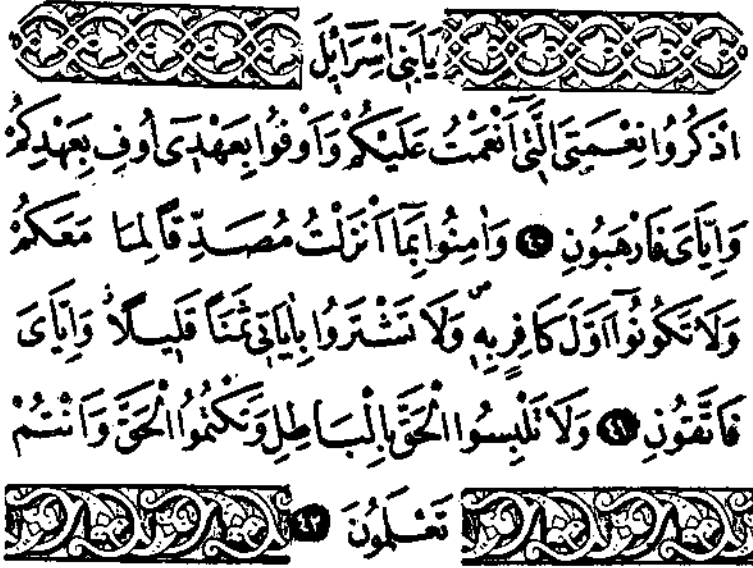 يَابَنٖٓي اِسْرَٓائٖلَ
اذْكُرُوا نِعْمَتِيَ الَّتٖٓي اَنْعَمْتُ عَلَيْكُمْ وَاَوْفُوا بِعَهْدٖٓي اُوفِ بِعَهْدِكُمْ
وَاِيَّايَ فَارْهَبُونِ ٤٠ وَاٰمِنُوا بِمَٓا اَنْزَلْتُ مُصَدِّقًا لِمَا مَعَكُمْ
وَلَا تَكُونُٓوا اَوَّلَ كَافِرٍ بِهٖۖ وَلَا تَشْتَرُوا بِاٰيَاتٖي ثَمَنًا قَلٖيلًاۘ وَاِيَّايَ
فَاتَّقُونِ ٤١ وَلَا تَلْبِسُوا الْحَقَّ بِالْبَاطِلِ وَتَكْتُمُوا الْحَقَّ وَاَنْتُمْ
تَعْلَمُونَ ٤٢